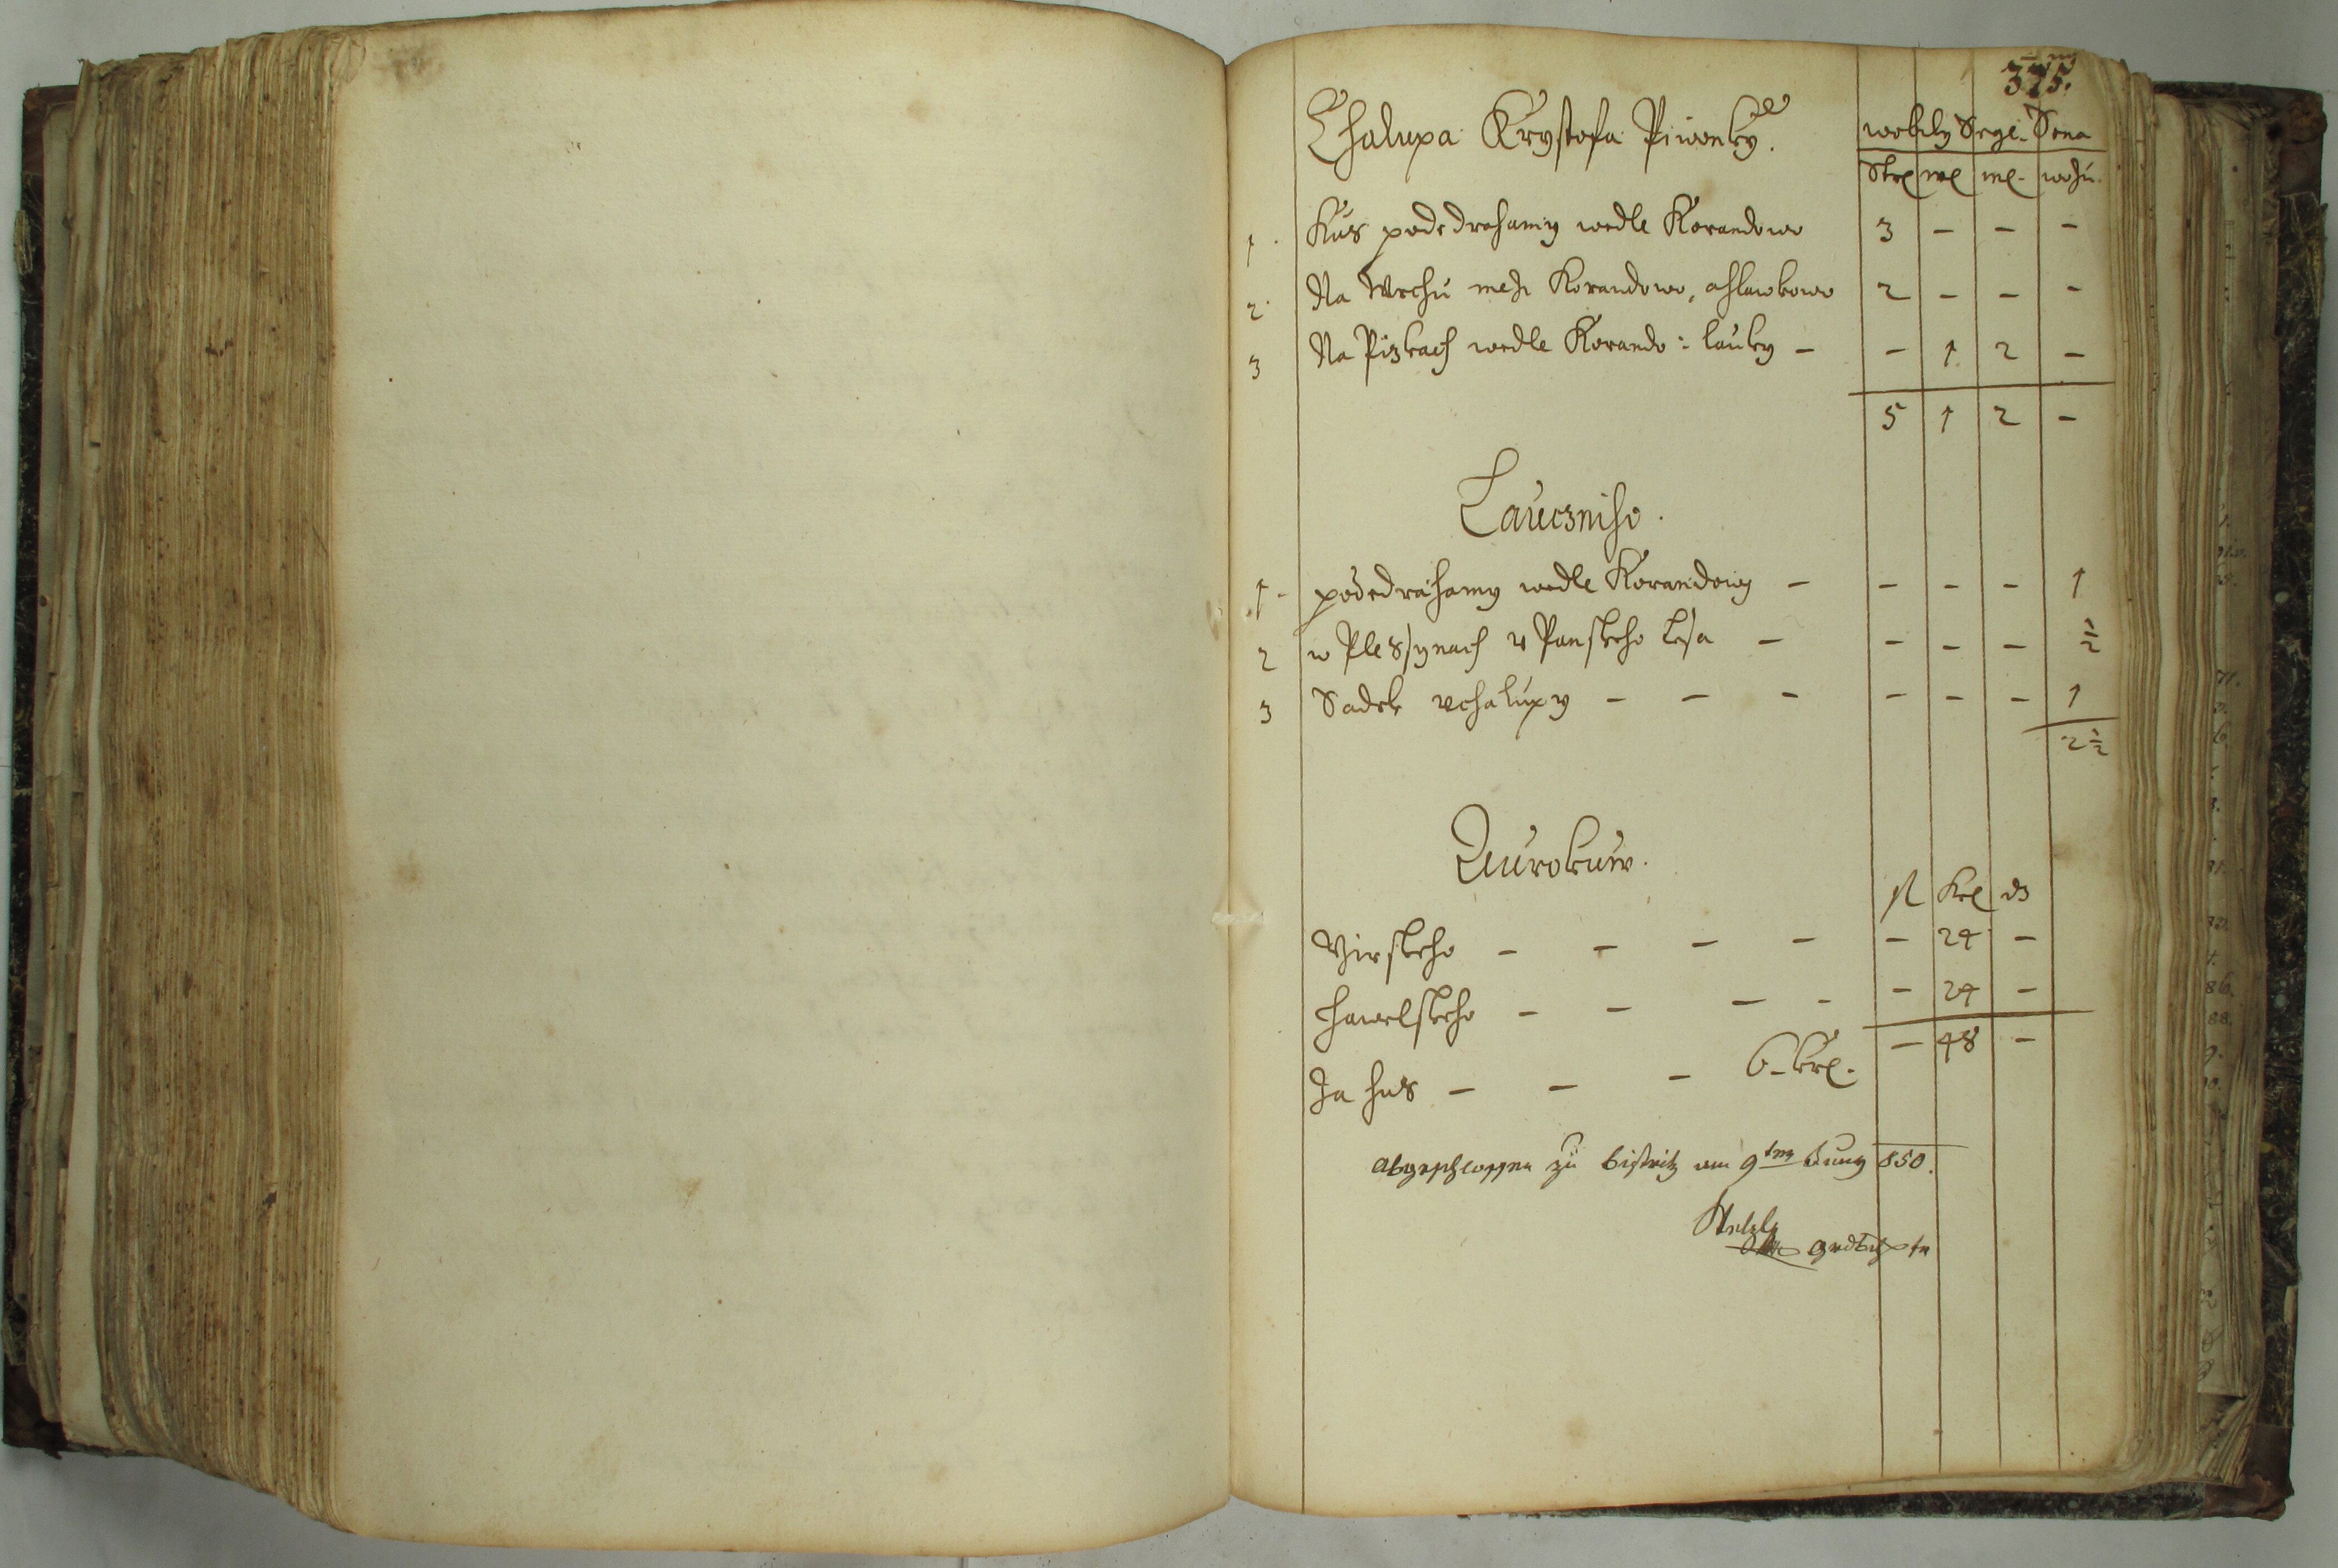 375.
Chalupa Krystofa Piwonky.
wobily Sege. Sena
Strl wl ml. wozu.
1. Kus podedrahamy wedle Korandowo 3 – – –
2. Na Wrchu mezi Korandowo, a hlawkowo 2 – – –
3 Na Pizkach wedle Korando: lauky – – 1 2 –
5 1 2 –
Lauczniho.
1. podedrahamy wedle Korandowy – – – – 1
2 w Plessynach v Panskeho lesa – – – – ½
3 Sadek vchalupy – – – – – – 1
2½
Aurokuw.
fl Krl d
Girskeho – – – – – 24 –
hawelskeho – – – – – 24 –
– 48 –
Za hus – – – 6 krl.
Abgeschlossen zu Bistritz am 9ten Juny 850.